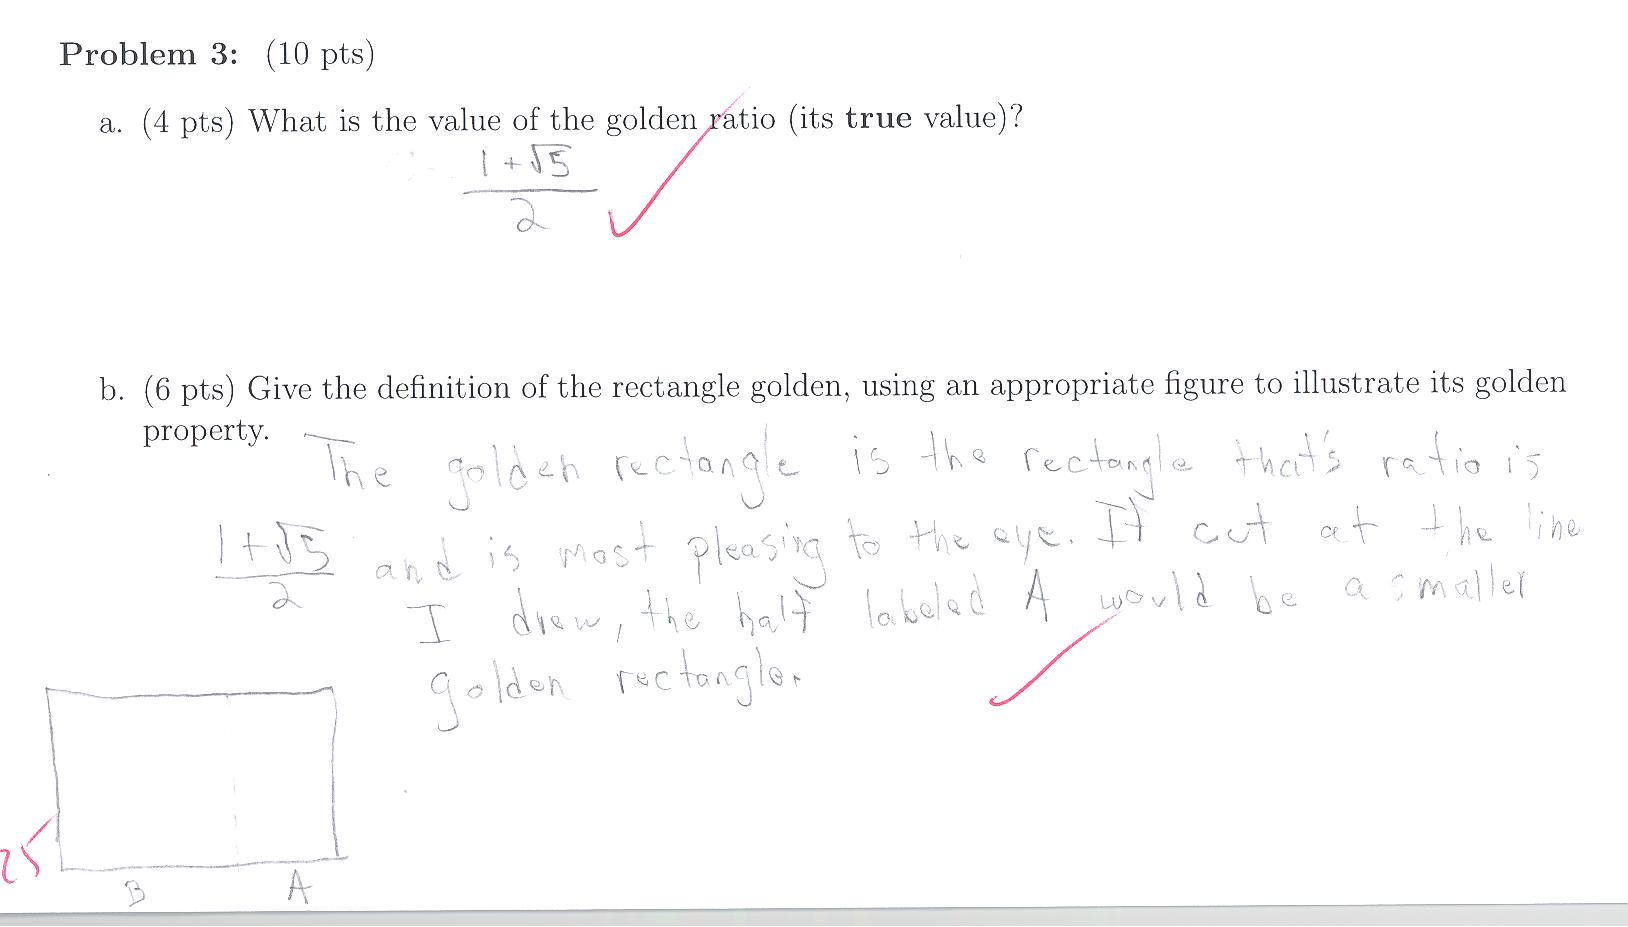 Problem 3: (10 pts)
a. (4 pts) What is the value of the golden ratio (its true value)?
1+√5
2
b. (6 pts) Give the definition of the rectangle golden, using an appropriate figure to illustrate its golden
property.
The golden rectangle is the rectangle that's ratio is
1+√5 and is most pleasing to the eye. If cut at the line
2
I drew, the half labeled A would be a smaller
golden rectangle.
25
B A